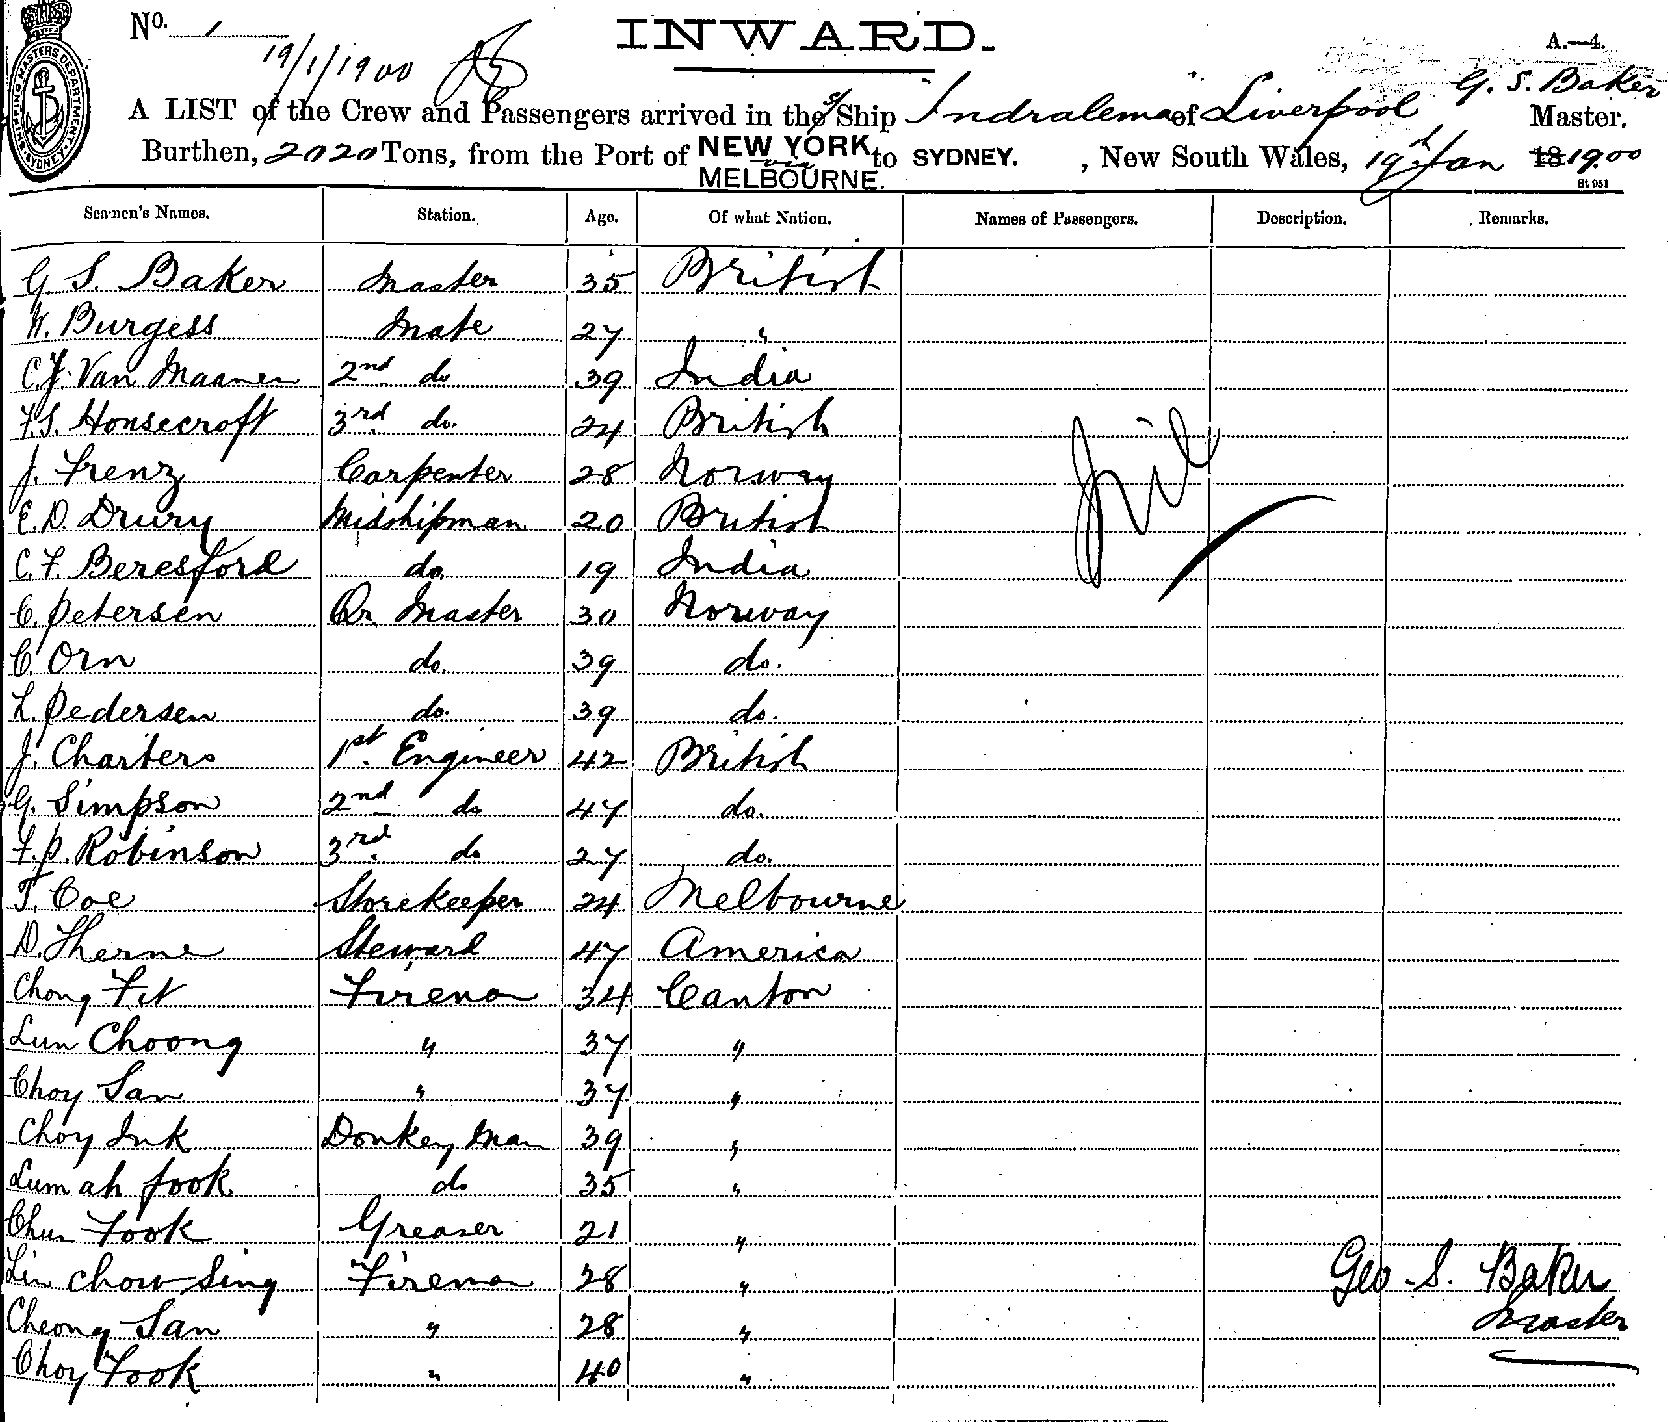 No. 1
INWARD.
A.—4.
19/1/1900
G. S. Baker
A LIST of the Crew and Passengers arrived in the S/Ship "Indralema" of Liverpool Master.
Burthen, 2020 Tons, from the Port of NEW YORK via MELBOURNE. to SYDNEY. , New South Wales, 19th Jan 1900
SHIPPING MASTERS DEPARTMENT SYDNEY
Seamen's Names. Station. Age. Of what Nation. Names of Passengers. Description. Remarks.
G. S. Baker Master 35 British
W. Burgess Mate 27 "
C.J. Van Maanen 2nd do 39 India
F.S. Honsecroft 3rd do. 24 British
J. Frenz Carpenter 28 Norway
Nil
E. D. Drury Midshipman 20 British
C. F. Beresford do. 19 India
C. Petersen Qr. Master 30 Norway
C. Orn do. 39 do.
L. Pedersen do. 39 do.
J. Charters 1st. Engineer 42 British
G. Simpson 2nd do 47 do.
F. P. Robinson 3rd. do 27 do.
T. Coe Storekeeper 24 Melbourne
D. Therne Steward 47 America
Chong Fit Fireman 34 Canton
Lun Choong " 37 "
Choy San " 37 "
Choy Ink Donkey Man 39 "
Lum ah fook do 35 "
Chun Fook Greaser 21 "
Lin Chow Sing Fireman 28 "
Geo. S. Baker
Cheong San " 28 "
Master
Choy Fook " 40 "